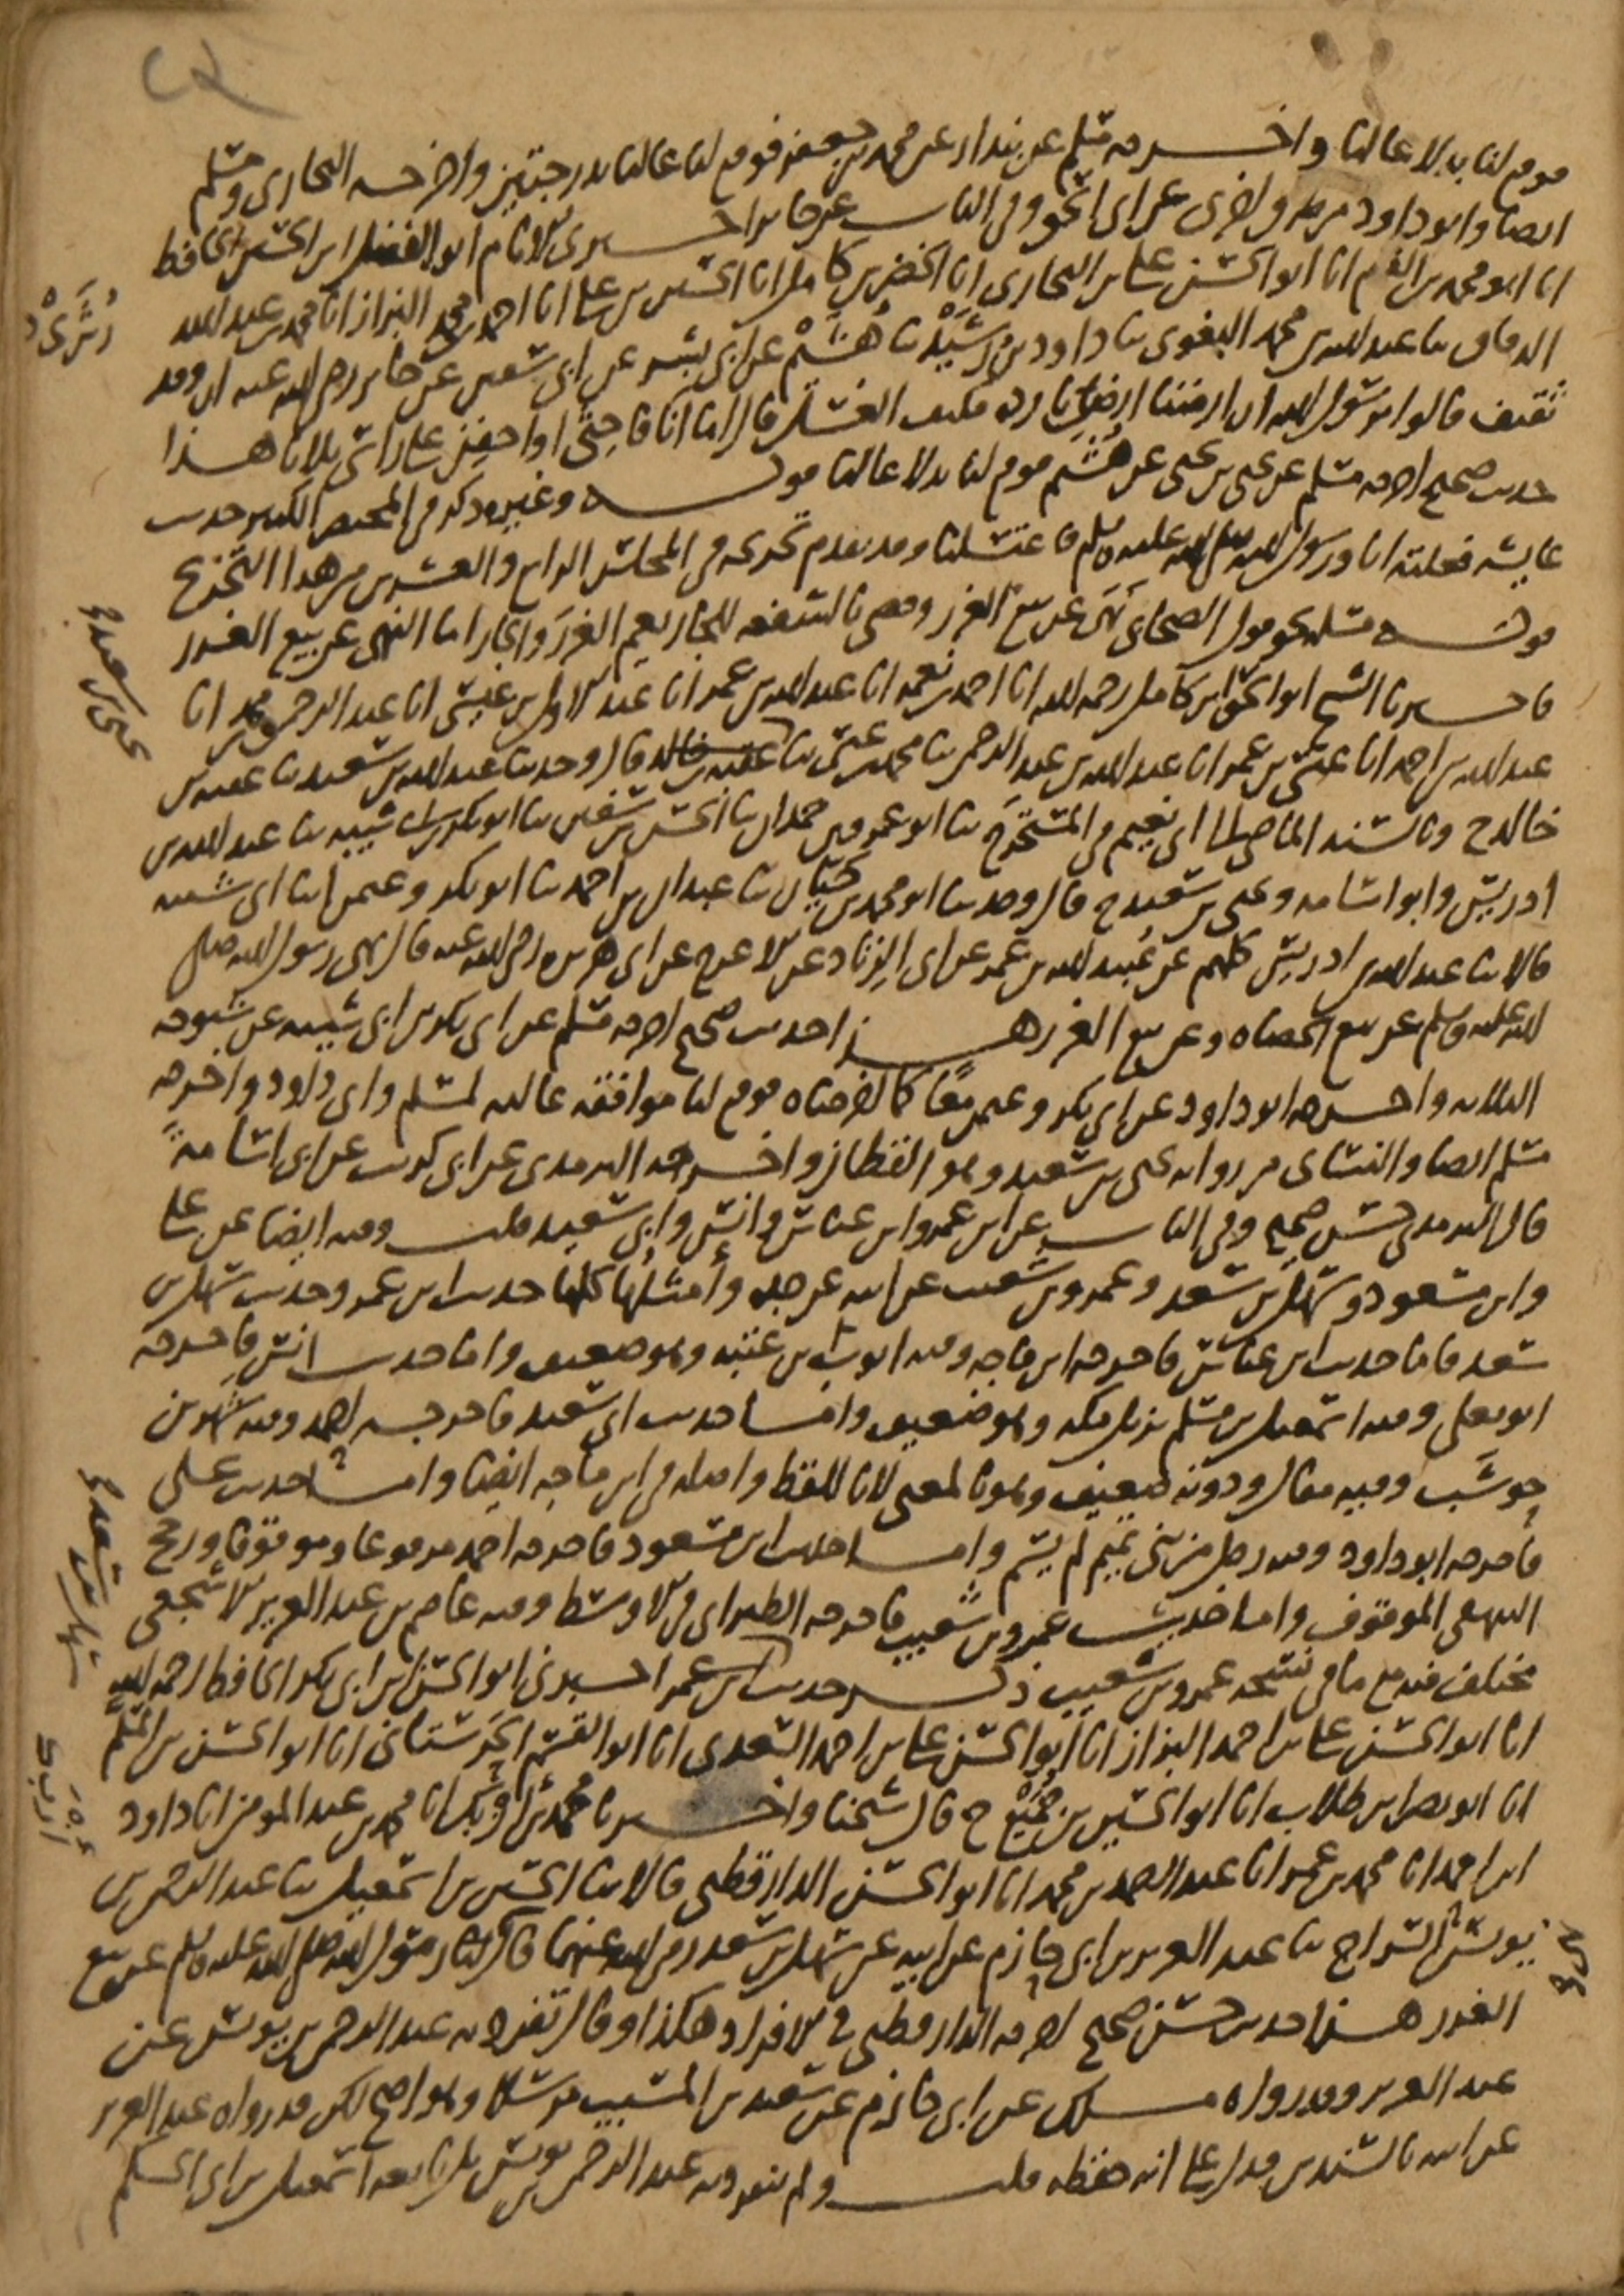 فوقع لنا بدلا عاليا وأخرجه مسلم عن بندار عن محمد بن جعفر فوقع لنا عاليا بدرجتين وأخرجه البخاري ومسلم
ايضا وابو داود من طرق اخرى عن ابي اسحق وفي الباب عن جابر اخبرني الامام ابو الفضل ابن الحسين الحافظ
انا ابو محمد بن القيم انا ابو الحسن علي بن البخاري انا الخضر بن كامل انا الحسين بن علي انا احمد بن محمد البزاز انا محمد بن عبد الله
الدقاق ثنا عبد الله بن محمد البغوي ثنا داود بن رشيد ثنا هشيم عن ابي بشر عن ابي سفين عن جابر رضي الله عنه ان وفد
ثقيف قالوا يا رسول الله ان ارضنا ارض باردة فكيف الغسل قال اما انا فاحثي او احفن على راسي ثلاثا هذا
حديث صحيح اخرجه مسلم عن يحيى بن يحيى عن هشيم فوقع لنا بدلا عاليا قوله وغيره ذكر في المختصر الكبير حديث
عايشة فعلته انا ورسول الله صلى الله عليه وسلم فاغتسلنا وقد تقدم تخريجه في المجلس الرابع والعشرين من هذا التخريج
قوله مسلة نحو قول الصحابي نهى عن بيع الغرر وقضى بالشفعة للجار يعم الغرر والجار اما النهي عن بيع الغرر
فاخبرنا الشيخ ابو اسحق ابن كامل رحمه الله انا احمد بن نعمة انا عبد الله بن عمر انا عبد الاول بن عيسى انا عبد الرحمن بن محمد انا
عبد الله بن احمد انا عيسى بن عمر انا عبد الله بن عبد الرحمن ثنا محمد بن عيسى ثنا عقبة بن خالد قال وحدثنا عبد الله بن سعيد ثنا عقبة بن
خالد ح وبالسند الماضي الى ابي نعيم في المستخرج ثنا ابو عمرو بن حمدان ثنا الحسن بن سفين ثنا ابو بكر بن ابي شيبة ثنا عبد الله بن
ادريس وابو اسامة ويحيى بن سعيد ح قال وحدثنا ابو محمد بن حيان ثنا عبدان بن احمد ثنا ابو بكر وعثمن ابنا ابي شيبة
قالا ثنا عبد الله بن ادريس كلهم عن عبيد الله بن عمر عن ابي الزناد عن الاعرج عن ابي هريرة رضي الله عنه قال نهى رسول الله صلى
الله عليه وسلم عن بيع الحصاة وعن بيع الغرر هذا حديث صحيح اخرجه مسلم عن ابي بكر بن ابي شيبة عن شيوخه
الثلاثة واخرجه ابو داود عن ابي بكر وعثمن معا كما اخرجناه فوقع لنا موافقة عالية لمسلم وابي داود واخرجه
مسلم ايضا والنسائي من رواية يحيى بن سعيد وهو القطان واخرجه الترمذي عن ابي كريب عن ابي اسامة
قال الترمذي حسن صحيح وفي الباب عن ابن عمر وابن عباس وانس وابي سعيد قلت وفيه ايضا عن علي
وابن مسعود وسهل بن سعد وعمرو بن شعيب عن ابيه عن جده وأمثلها كلها حديث ابن عمر وحديث سهل بن
سعد فاما حديث ابن عباس فاخرجه ابن ماجه وفيه ايوب بن عتبة وهو ضعيف واما حديث انس فاخرجه
ابو يعلى وفيه اسمعيل بن مسلم نزيل مكة وهو ضعيف واما حديث ابي سعيد فاخرجه احمد وفيه شهر بن
حوشب وفيه مقال ودونه ضعيف وهو بالمعنى لا باللفظ واصله في ابن ماجه ايضا واما حديث علي
فاخرجه ابو داود وفيه رجل من بني تميم لم يسم واما حديث ابن مسعود فاخرجه احمد مرفوعا وموقوفا ورجح
البيهقي الموقوف واما حديث عمرو بن شعيب فاخرجه الطبراني في الاوسط وفيه عاصم بن عبد العزيز الاشجعي
مختلف فيه مع ما في نسخة عمرو بن شعيب ذكر حديث ابن عمر اخبرني ابو الحسن ابن ابي بكر الحافظ رحمه الله
انا ابو الحسن علي بن احمد البزاز انا ابو الحسن علي بن احمد السعدي انا ابو القسم الحرستاني انا ابو الحسن بن المسلم
انا ابو نصر ابن طلاب انا ابو الحسين بن جميع ح قال شيخنا واخبرنا محمد بن ازبك انا محمد بن عبد المومن انا داود
ابن احمد انا محمد بن عمر انا عبد الصمد بن محمد انا ابو الحسن الدارقطني قالا ثنا الحسين بن اسمعيل ثنا عبد الرحمن بن
يونس السراج ثنا عبد العزيز بن ابي حازم عن ابيه عن سهل بن سعد رضي الله عنهما قال نهى رسول الله صلى الله عليه وسلم عن بيع
الغرر هذا حديث حسن صحيح اخرجه الدارقطني في الافراد هكذا وقال تفرد به عبد الرحمن بن يونس عن
عبد العزيز وقد رواه ملك عن ابي حازم عن سعيد بن المسيب مرسلا وهو اصح لكن قد رواه عبد العزيز
عن ابيه بالسندين فدل على انه حفظه قلت ولم ينفرد به عبد الرحمن بن يونس بل تابعه اسمعيل بن ابي الحكم
رشيد
يحيى بن سعيد
سهل بن سعد
ازبك